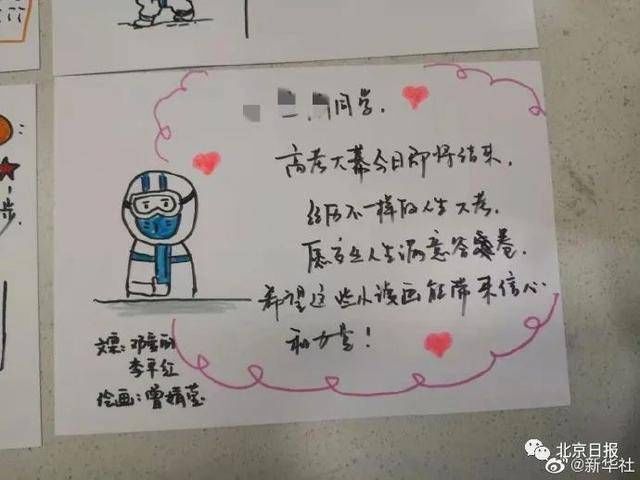 同学，
高考大幕今日即将结束，
经历不一样的人生大考，
愿交出人生满意答卷
希望这些小漫画能带来信心
和力量！
文案：邓
李平红
绘画：曾婧莹
北京日报
@新华社